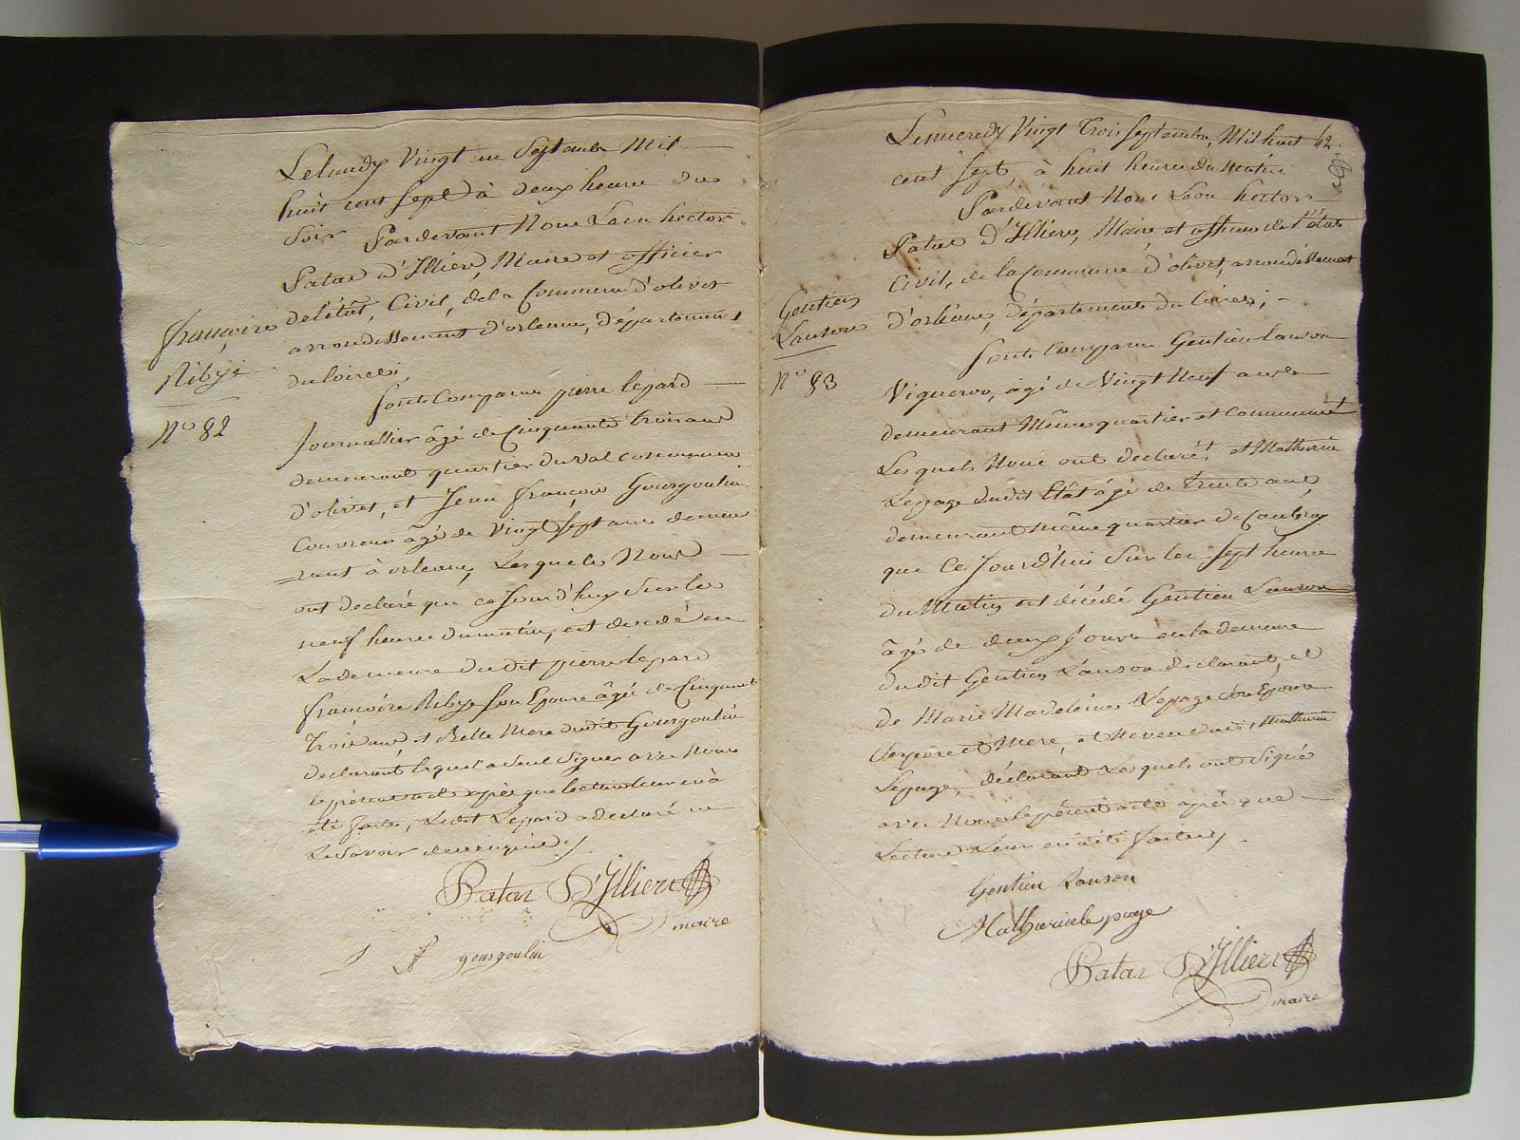 Le lundy Vingt un Septembre Mil
huit cent Sept à deux heures du
Soir Pardevant Nous Léon hector
Patas d'Illiers, Maire et officier
de l'état, Civil, de la Commune d'olivet
arrondissement d'orleans, département
du loiret
françoise
Ribÿe
N° 82
sont Comparus pierre lepard
Journallier âgé de Cinquante trois ans
demeurant quartier du val commune
d'olivet, et Jean françois Gourgoulin
Couvreur âgé de Vingt Sept ans demeu
=rant à orleans, Lesquels Nous
ont declaré que ce Jour d'huy Sur les
neuf heures du matin, est decedé en
La demeure dudit pierre lepard
françoise Ribÿe Son Epouse âgée de Cinquante
Trois ans, et Belle Mere dudit Gourgoulin
declarant lequel a Seul Signé avec Nous
le présent acte après que lecture leur en à
été faite, Ledit Lepard a declaré ne
Le Savoir de ce enquis
Patas D'Illiers
maire
gourgoulin
Le mercredy Vingt Trois Septembre, Mil huit
42
cent Sept, à huit heures du Matin
Pardevant Nous Léon hector
Patas d'Illiers, Maire et officier de l'état
Civil, de la Commune d'olivet, arrondissement
d'orléans, département du Loiret,
Gentien
Lanson
N° 83
sont Comparus Gentien lanson
Vigneron, âgé de Vingt Neuf ans
demeurant Même quartier et commune
Lesquels Nous ont declaré, et Mathurin
Lepage dudit Etât âgé de trente ans,
demeurant même quartier de Coubray
que Ce Jourd'hui Sur les Sept heures
du Matin est décédé Gentien Lanson
âgé de deux Jours en la demeure
dudit Gentien Lanson declarant, et
de Marie Madeleine Lepage Son Epouse
Ses pere et Mere, et Neveu dudit Mathurin
Lepage, déclarant Lesquels ont Signé
avec Nous le présent acte après que
Lecture Leur en a été faite
Gentien Lanson
Mathurin le page
Patas D'Illiers
maire